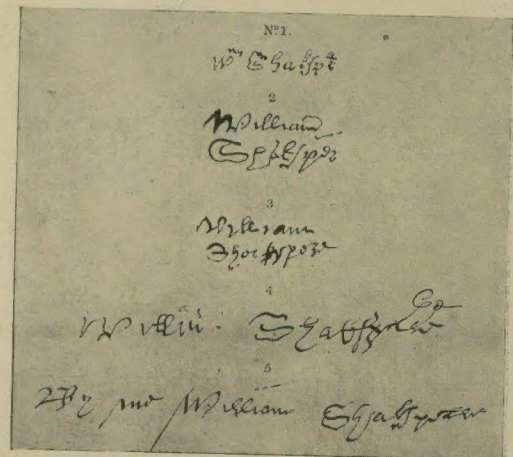 Nº1.
Wm Shakspē
2
William
Shakspēr
3
William
Shakspere
4
Willm: Shakspere
5
By me William Shakspeare